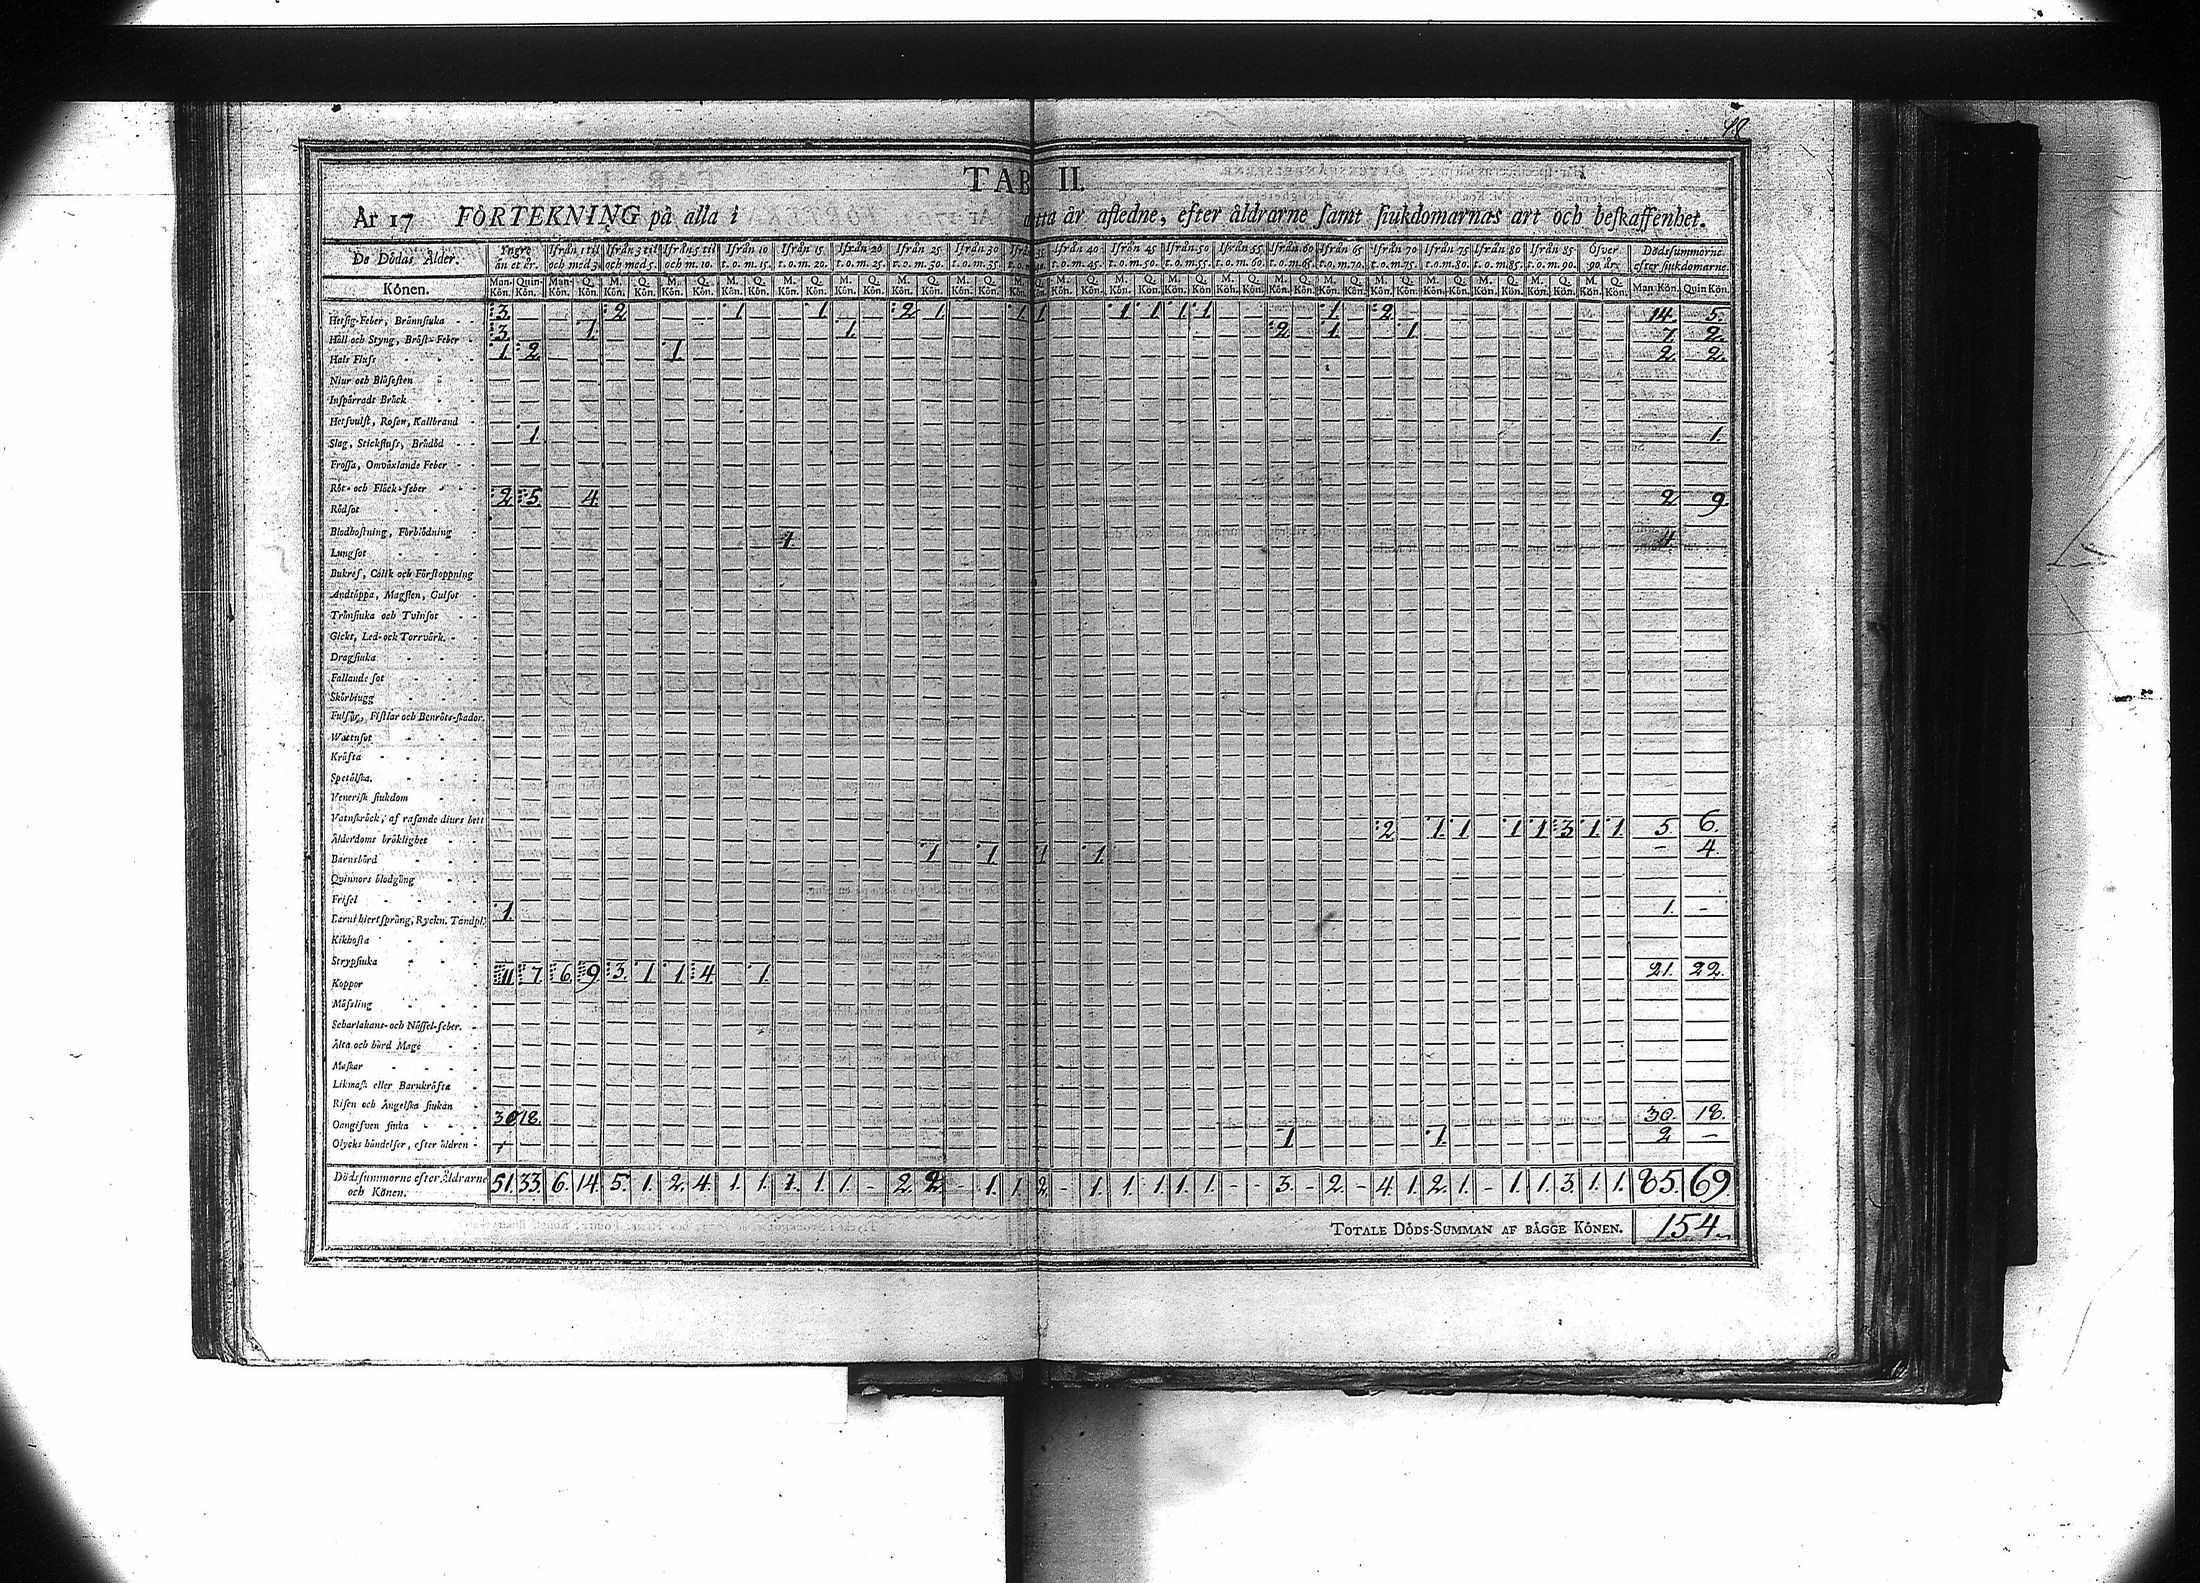 48
TAB II.
År 17 FÖRTEKNING på alla i detta år afledne, efter åldrarne samt siukdomarnas art och beskaffenhet.
De Dödas Ålder. Yngre än et år. Ifrån 1 til och med 3. Ifrån 3 til och med 5. Ifrån 5 til och m. 10. Ifrån 10 t.o.m. 15. Ifrån 15 t.o.m. 20. Ifrån 20 t.o.m. 25. Ifrån 25 t.o.m. 30. Ifrån 30 t.o.m. 35. Ifrån 40 t.o.m. 45. Ifrån 45 t.o.m. 50. Ifrån 50 t.o.m. 55. Ifrån 55 t.o.m. 60. Ifrån 60 t.o.m. 65. Ifrån 65 t.o.m. 70. Ifrån 70 t.o.m. 75. Ifrån 75 t.o.m. 80. Ifrån 80 t.o.m. 85. Ifrån 85 t.o.m. 90. Öfver 90 år. Dödssummorne efter siukdomarne.
Könen. Man-Kön. Quin-Kön. Man-Kön. Q. Kön. M. Kön. Q. Kön. M. Kön. Q. Kön. M. Kön. Q. Kön. M. Kön. Q. Kön. M. Kön. Q. Kön. M. Kön. Q. Kön. M. Kön. Q. Kön. M. Kön. Q. Kön. M. Kön. Q. Kön. M. Kön. Q. Kön. M. Kön. Q. Kön. M. Kön. Q. Kön. M. Kön. Q. Kön. M. Kön. Q. Kön. M. Kön. Q. Kön. M. Kön. Q. Kön. M. Kön. Q. Kön. M. Kön. Q. Kön. M. Kön. Q. Kön. Man Kön. Quin Kön.
Hetsig-Feber, Brännsiuka 3. 2 1 1. 2 1. 1 1 1 1 1 1 1. 2 14. 5.
Håll och Styng, Bröst-Feber 3. 1. 1. 2 1. 1 7. 2.
Hals Fluss 1 2 1. 2. 2.
Niur och Blåsesten
Inspärradt Bråck
Hetsvulst, Rosen, Kallbrand
Slag, Stickfluss, Brådöd 1. 1.
Frossa, Omväxlande Feber
Röt- och Fläck-feber
Rödsot 2 5. 4. 2 9.
Blodhostning, Förblödning
Lungsot 1.
Bukref, Colik och Förstoppning
Andtäppa, Magsten, Gulsot
Trånsiuka och Tvinsot
Gickt, Led- och Torrvärk.
Dragsiuka
Fallande sot
Skörbiugg
Fulsår, Fistlar och Benröts-skador.
Wattusot
Kräfta
Spetälska.
Venerisk siukdom
Vatnskräck, af rasande diurs bett
Ålderdoms bräklighet 2. 1. 1 1 1 3 1 1. 5. 6.
Barnsbörd 1. 1. 1 1. – 4.
Quinnors blodgång
Frisel
Barns hiertsprång, Ryckn. Tandpl. 1. 1. –
Kikhosta
Strypsiuka
Koppor 11 7. 6. 9 3. 1. 1 4. 1. 21. 22.
Mässling
Scharlakans- och Nässel-feber.
Älta och hård Mage
Maskar
Likmask eller Barnkräfta
Risen och Ängelska siukan
Oangifven siuka 30 18. 30. 18.
Olycks händelser, efter äldren 1 1. 2 –
Dödssummorne efter Åldrarne och Könen. 51. 33. 6. 14. 5. 1. 2. 4. 1. 1. 1. 1. 1. – 2. 2. – 1. 1. 2. – 1. 1. 1. 1. 1. – – 3. – 2. – 4. 1. 2. 1. – 1. 1. 3. 1. 1. 85. 69
TOTALE DÖDS-SUMMAN AF BÅGGE KÖNEN. 154.